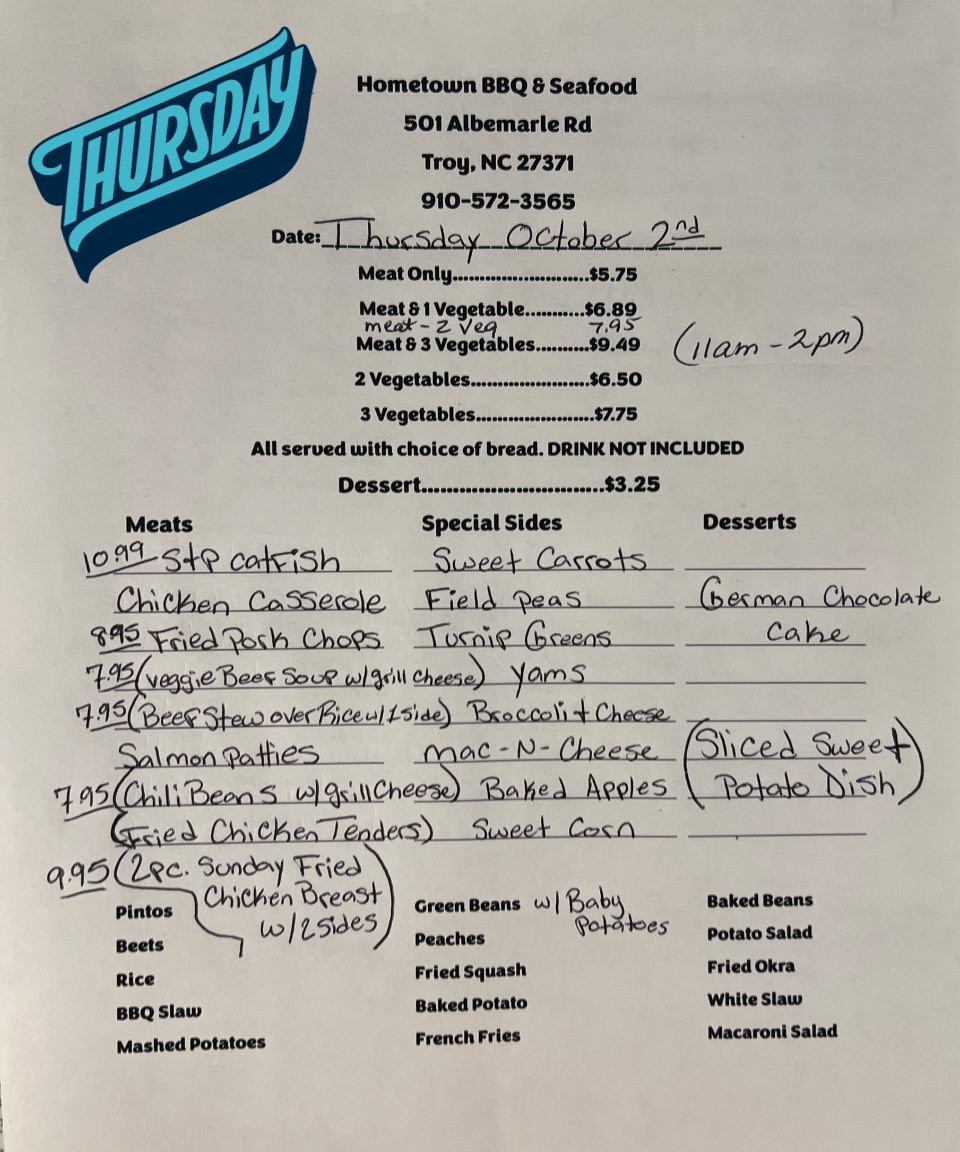 THURSDAY
Hometown BBQ & Seafood
501 Albemarle Rd
Troy, NC 27371
910-572-3565
Date: Thursday October 2nd
Meat Only..............................$5.75
Meat & 1 Vegetable...........$6.89
meat - 2 Veg 7.95
Meat & 3 Vegetables..........$9.49 (11am - 2pm)
2 Vegetables..........................$6.50
3 Vegetables..........................$7.75
All served with choice of bread. DRINK NOT INCLUDED
Dessert..............................$3.25
Meats Special Sides Desserts
10.99 S+P Catfish Sweet Carrots
Chicken Casserole Field Peas German Chocolate
8.95 Fried Pork Chops Turnip Greens Cake
7.95 (Veggie Beef Soup w/grill cheese) Yams
7.95 (Beef Stew over Rice w/1 side) Broccoli + Cheese
Salmon Patties Mac-N-Cheese (Sliced Sweet
7.95 (Chili Beans w/grill Cheese) Baked Apples Potato Dish)
(Fried Chicken Tenders) Sweet Corn
9.95 (2pc. Sunday Fried
Chicken Breast
w/2 sides)
Pintos Green Beans w/ Baby Potatoes Baked Beans
Beets Peaches Potato Salad
Rice Fried Squash Fried Okra
BBQ Slaw Baked Potato White Slaw
Mashed Potatoes French Fries Macaroni Salad